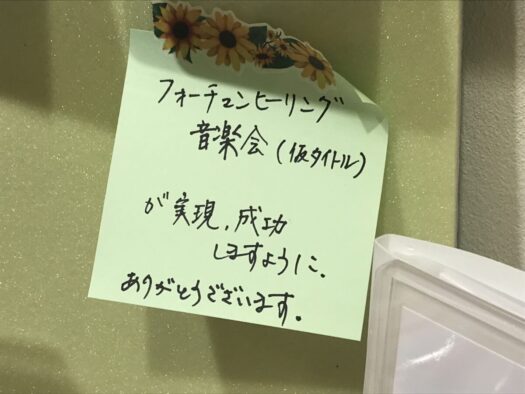 フォーチュンヒーリング
音楽会(仮タイトル)
が実現,成功
しますように、
ありがとうございます。